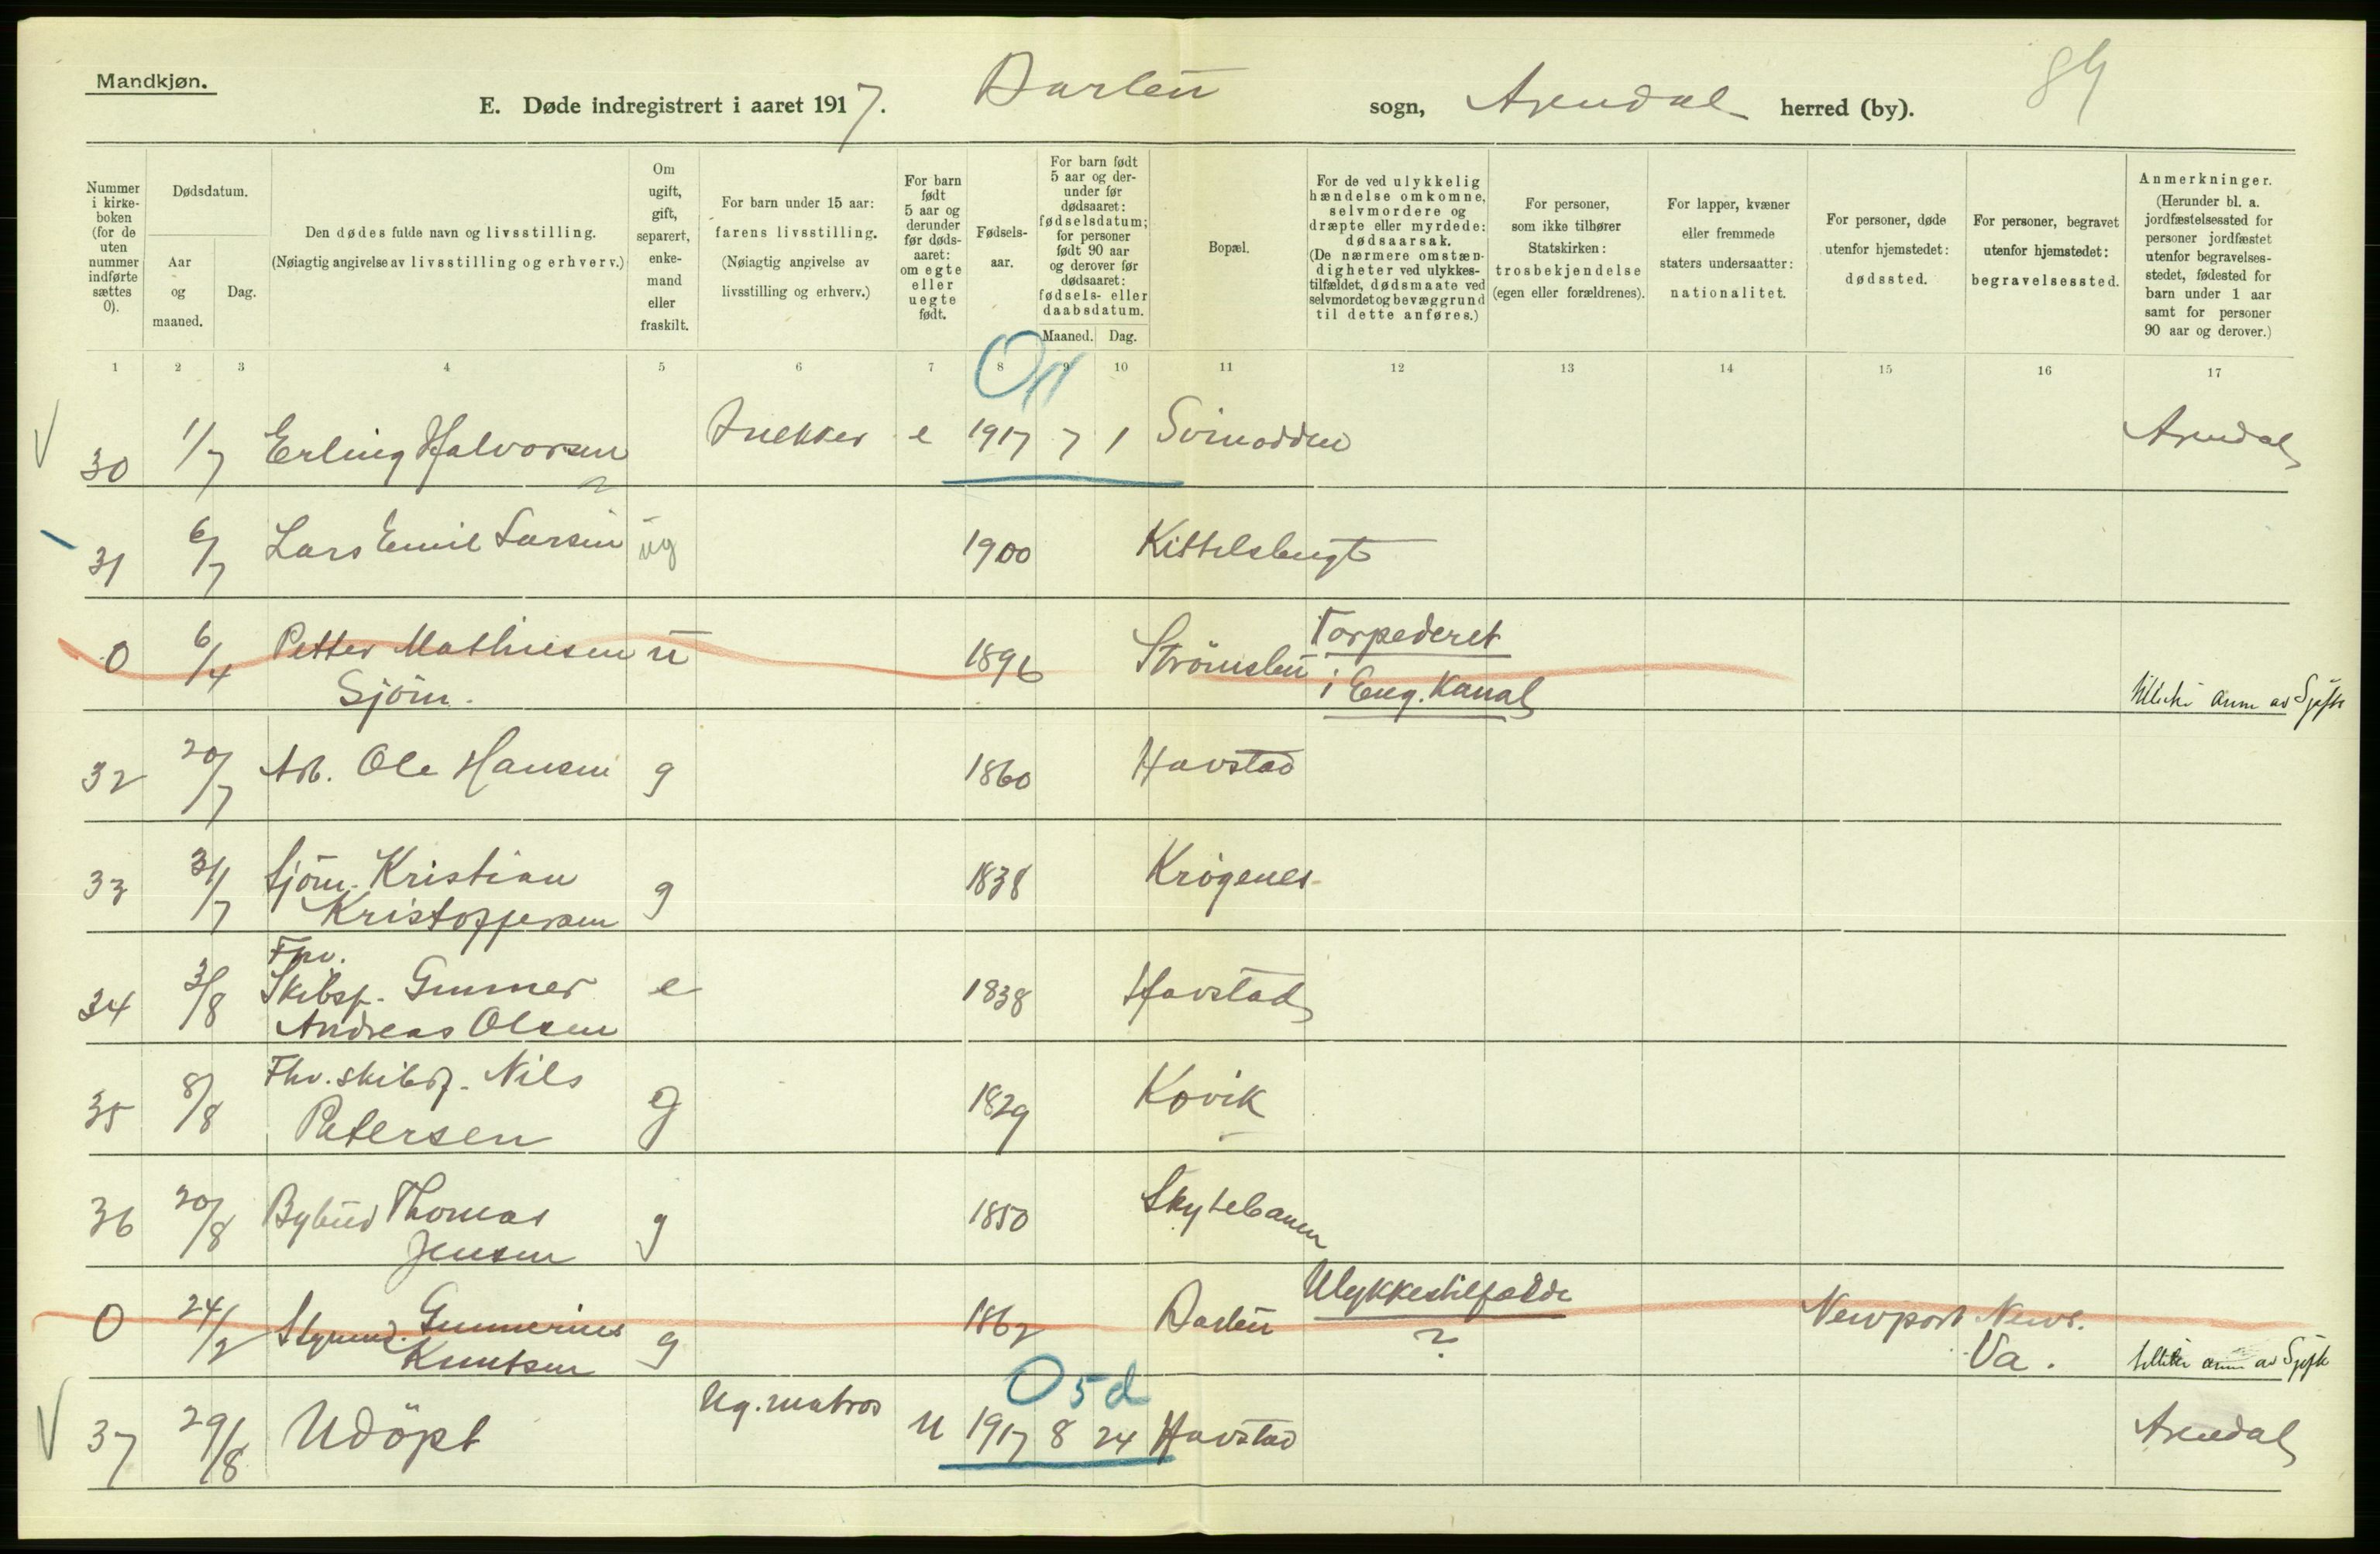 Mandkjøn.
E. Døde indregistrert i aaret 1917. Barbu sogn, Arendal herred (by).
84
Nummer i kirke-boken (for de uten nummer indførte sættes 0).
Dødsdatum.
Aar og maaned.
Dag.
Den dødes fulde navn og livsstilling.
(Nøiagtig angivelse av livsstilling og erhverv.)
Om ugift, gift, separert, enke-mand eller fraskilt.
For barn under 15 aar: farens livsstilling.
(Nøiagtig angivelse av livsstilling og erhverv.)
For barn født 5 aar og derunder før døds-aaret: om egte eller uegte født.
Fødsels-aar.
For barn født 5 aar og der-under før dødsaaret: fødselsdatum; for personer født 90 aar og derover før dødsaaret: fødsels- eller daabsdatum.
Maaned. Dag.
Bopæl.
For de ved ulykkelig hændelse omkomne, selvmordere og dræpte eller myrdede: dødsaarsak.
(De nærmere omstæn-digheter ved ulykkes-tilfældet, dødsmaate ved selvmordet og bevæggrund til dette anføres.)
For personer, som ikke tilhører Statskirken: trosbekjendelse (egen eller forældrenes).
For lapper, kvæner eller fremmede staters undersaatter: nationalitet.
For personer, døde utenfor hjemstedet: dødssted.
For personer, begravet utenfor hjemstedet: begravelsessted.
Anmerkninger.
(Herunder bl. a. jordfæstelsessted for personer jordfæstet utenfor begravelses-stedet, fødested for barn under 1 aar samt for personer 90 aar og derover.)
1 2 3 4 5 6 7 8 9 10 11 12 13 14 15 16 17
30 1/7 Erling Halvorsen Snekker e 1917 7 1 Svinodden Arendal
31 6/7 Lars Emil Larsen ug 1900 Kittelsbugt
0 6/4 Petter Mathiesen u 1896 Strömsbu Torpederet
Sjöm. i Eng. Kanal
anm av Sjøfk
32 20/7 Arb. Ole Hansen g 1860 Havstad
33 31/7 Sjöm. Kristian g 1838 Krögenes
Kristoffersen
Fhv.
34 3/8 Skibsf. Gunner e 1838 Havstad
Andreas Olsen
35 8/8 Fhv. skibsf. Nils g 1829 Kovik
Petersen
36 20/8 Bybud Thomas g 1850 Skytebanen
Jensen
0 24/2 Styrmd. Gunnerius g 1862 Barbu Ulykkestilfælde Newport News.
Knutsen ? Va. anm av Sjøfk
O 5 d
37 29/8 Udöpt Ug. matros u 1917 8 24 Havstad Arendal